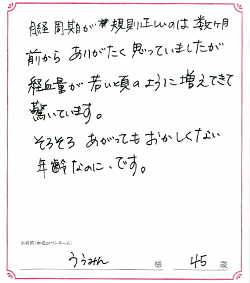 月経周期が規則正しいのは数ヶ月
前から ありがたく思っていましたが
経血量が若い頃のように増えてきて
驚いています。
そろそろ あがってもおかしくない
年齢なのに、です。
お名前(匿名orペンネーム)
うぅみん 様 45 歳